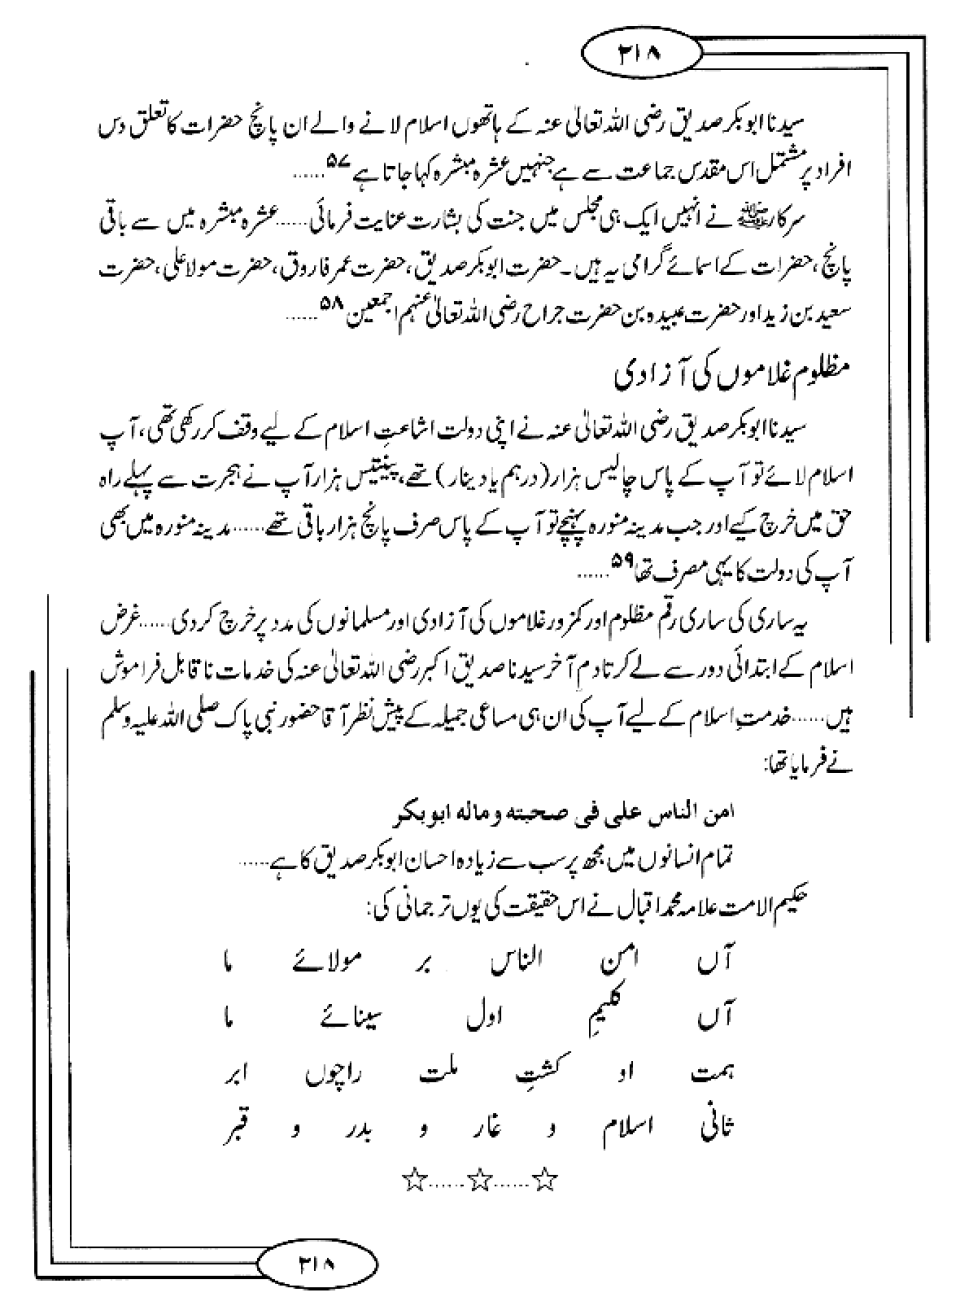 ۲۱۸
سیدنا ابوبکر صدیق رضی اللہ تعالیٰ عنہ کے ہاتھوں اسلام لانے والے ان پانچ حضرات کا تعلق دس
افراد پر مشتمل اس مقدس جماعت سے ہے جنہیں عشرہ مبشرہ کہا جاتا ہے ۵۷......
سرکار ﷺ نے انہیں ایک ہی مجلس میں جنت کی بشارت عنایت فرمائی......عشرہ مبشرہ میں سے باقی
پانچ، حضرات کے اسمائے گرامی یہ ہیں۔ حضرت ابوبکر صدیق، حضرت عمر فاروق، حضرت مولا علی، حضرت
سعید بن زید اور حضرت عبیدہ بن حضرت جراح رضی اللہ تعالیٰ عنہم اجمعین ۵۸......
مظلوم غلاموں کی آزادی
سیدنا ابوبکر صدیق رضی اللہ تعالیٰ عنہ نے اپنی دولت اشاعتِ اسلام کے لیے وقف کر رکھی تھی، آپ
اسلام لائے تو آپ کے پاس چالیس ہزار (درہم یا دینار) تھے، پینتیس ہزار آپ نے ہجرت سے پہلے راہ
حق میں خرچ کیے اور جب مدینہ منورہ پہنچے تو آپ کے پاس صرف پانچ ہزار باقی تھے......مدینہ منورہ میں بھی
آپ کی دولت کا یہی مصرف تھا ۵۹......
یہ ساری کی ساری رقم مظلوم اور کمزور غلاموں کی آزادی اور مسلمانوں کی مدد پر خرچ کردی......غرض
اسلام کے ابتدائی دور سے لے کر تادمِ آخر سیدنا صدیق اکبر رضی اللہ تعالیٰ عنہ کی خدمات ناقابل فراموش
ہیں......خدمتِ اسلام کے لیے آپ کی ان ہی مساعی جمیلہ کے پیش نظر آقا حضور نبی پاک صلی اللہ علیہ وسلم
نے فرمایا تھا:
امن الناس علی فی صحبته و ماله ابوبکر
تمام انسانوں میں مجھ پر سب سے زیادہ احسان ابوبکر صدیق کا ہے......
حکیم الامت علامہ محمد اقبال نے اس حقیقت کی یوں ترجمانی کی:
آں امن الناس بر مولائے ما
آں کلیمِ اول سینائے ما
ہمت او کشتِ ملت راچوں ابر
ثانی اسلام و غار و بدر و قبر
☆......☆......☆
۲۱۸